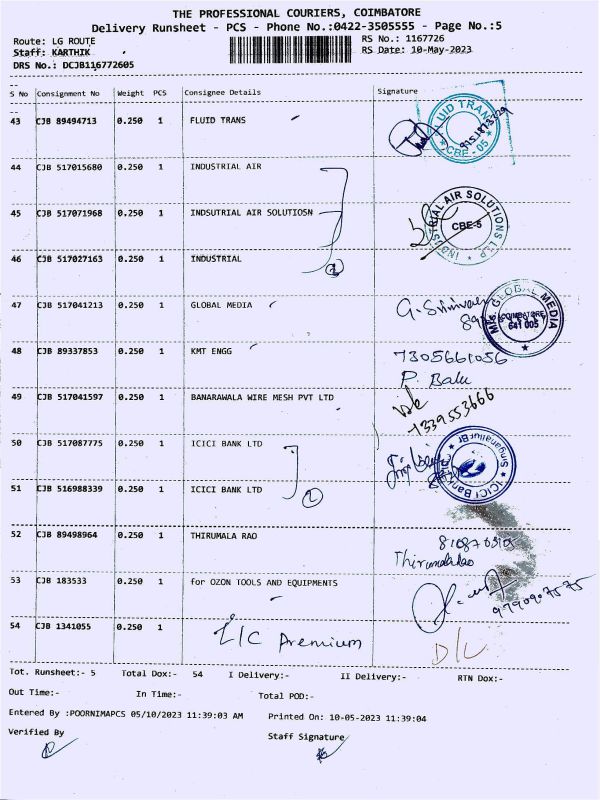 THE PROFESSIONAL COURIERS, COIMBATORE
Delivery Runsheet - PCS - Phone No.:0422-3505555 - Page No.:5
Route: LG ROUTE
RS No.: 1167726
Staff: KARTHIK
RS Date: 10-May-2023
DRS No.: DCJB116772605
S No Consignment No Weight PCS Consignee Details Signature
43 CJB 89494713 0.250 1 FLUID TRANS
FLUID TRANS CBE-05
44 CJB 517015680 0.250 1 INDUSTRIAL AIR
45 CJB 517071968 0.250 1 INDSUTRIAL AIR SOLUTIOSN
INDUSTRIAL AIR SOLUTIONS LLP CBE-5
46 CJB 517027163 0.250 1 INDUSTRIAL
47 CJB 517041213 0.250 1 GLOBAL MEDIA
G. Srinivas
M/s GLOBAL MEDIA COIMBATORE 641 005
48 CJB 89337853 0.250 1 KMT ENGG
7305661056
P. Balu
49 CJB 517041597 0.250 1 BANARAWALA WIRE MESH PVT LTD
7339553666
50 CJB 517087775 0.250 1 ICICI BANK LTD
ICICI Bank Singanallur Br
51 CJB 516988339 0.250 1 ICICI BANK LTD
2
52 CJB 89498964 0.250 1 THIRUMALA RAO
Thirumala Rao
53 CJB 183533 0.250 1 for OZON TOOLS AND EQUIPMENTS
9790907575
54 CJB 1341055 0.250 1 LIC Premium
D/L
Tot. Runsheet:- 5 Total Dox:- 54 I Delivery:- II Delivery:- RTN Dox:-
Out Time:- In Time:- Total POD:-
Entered By :POORNIMAPCS 05/10/2023 11:39:03 AM Printed On: 10-05-2023 11:39:04
Verified By Staff Signature